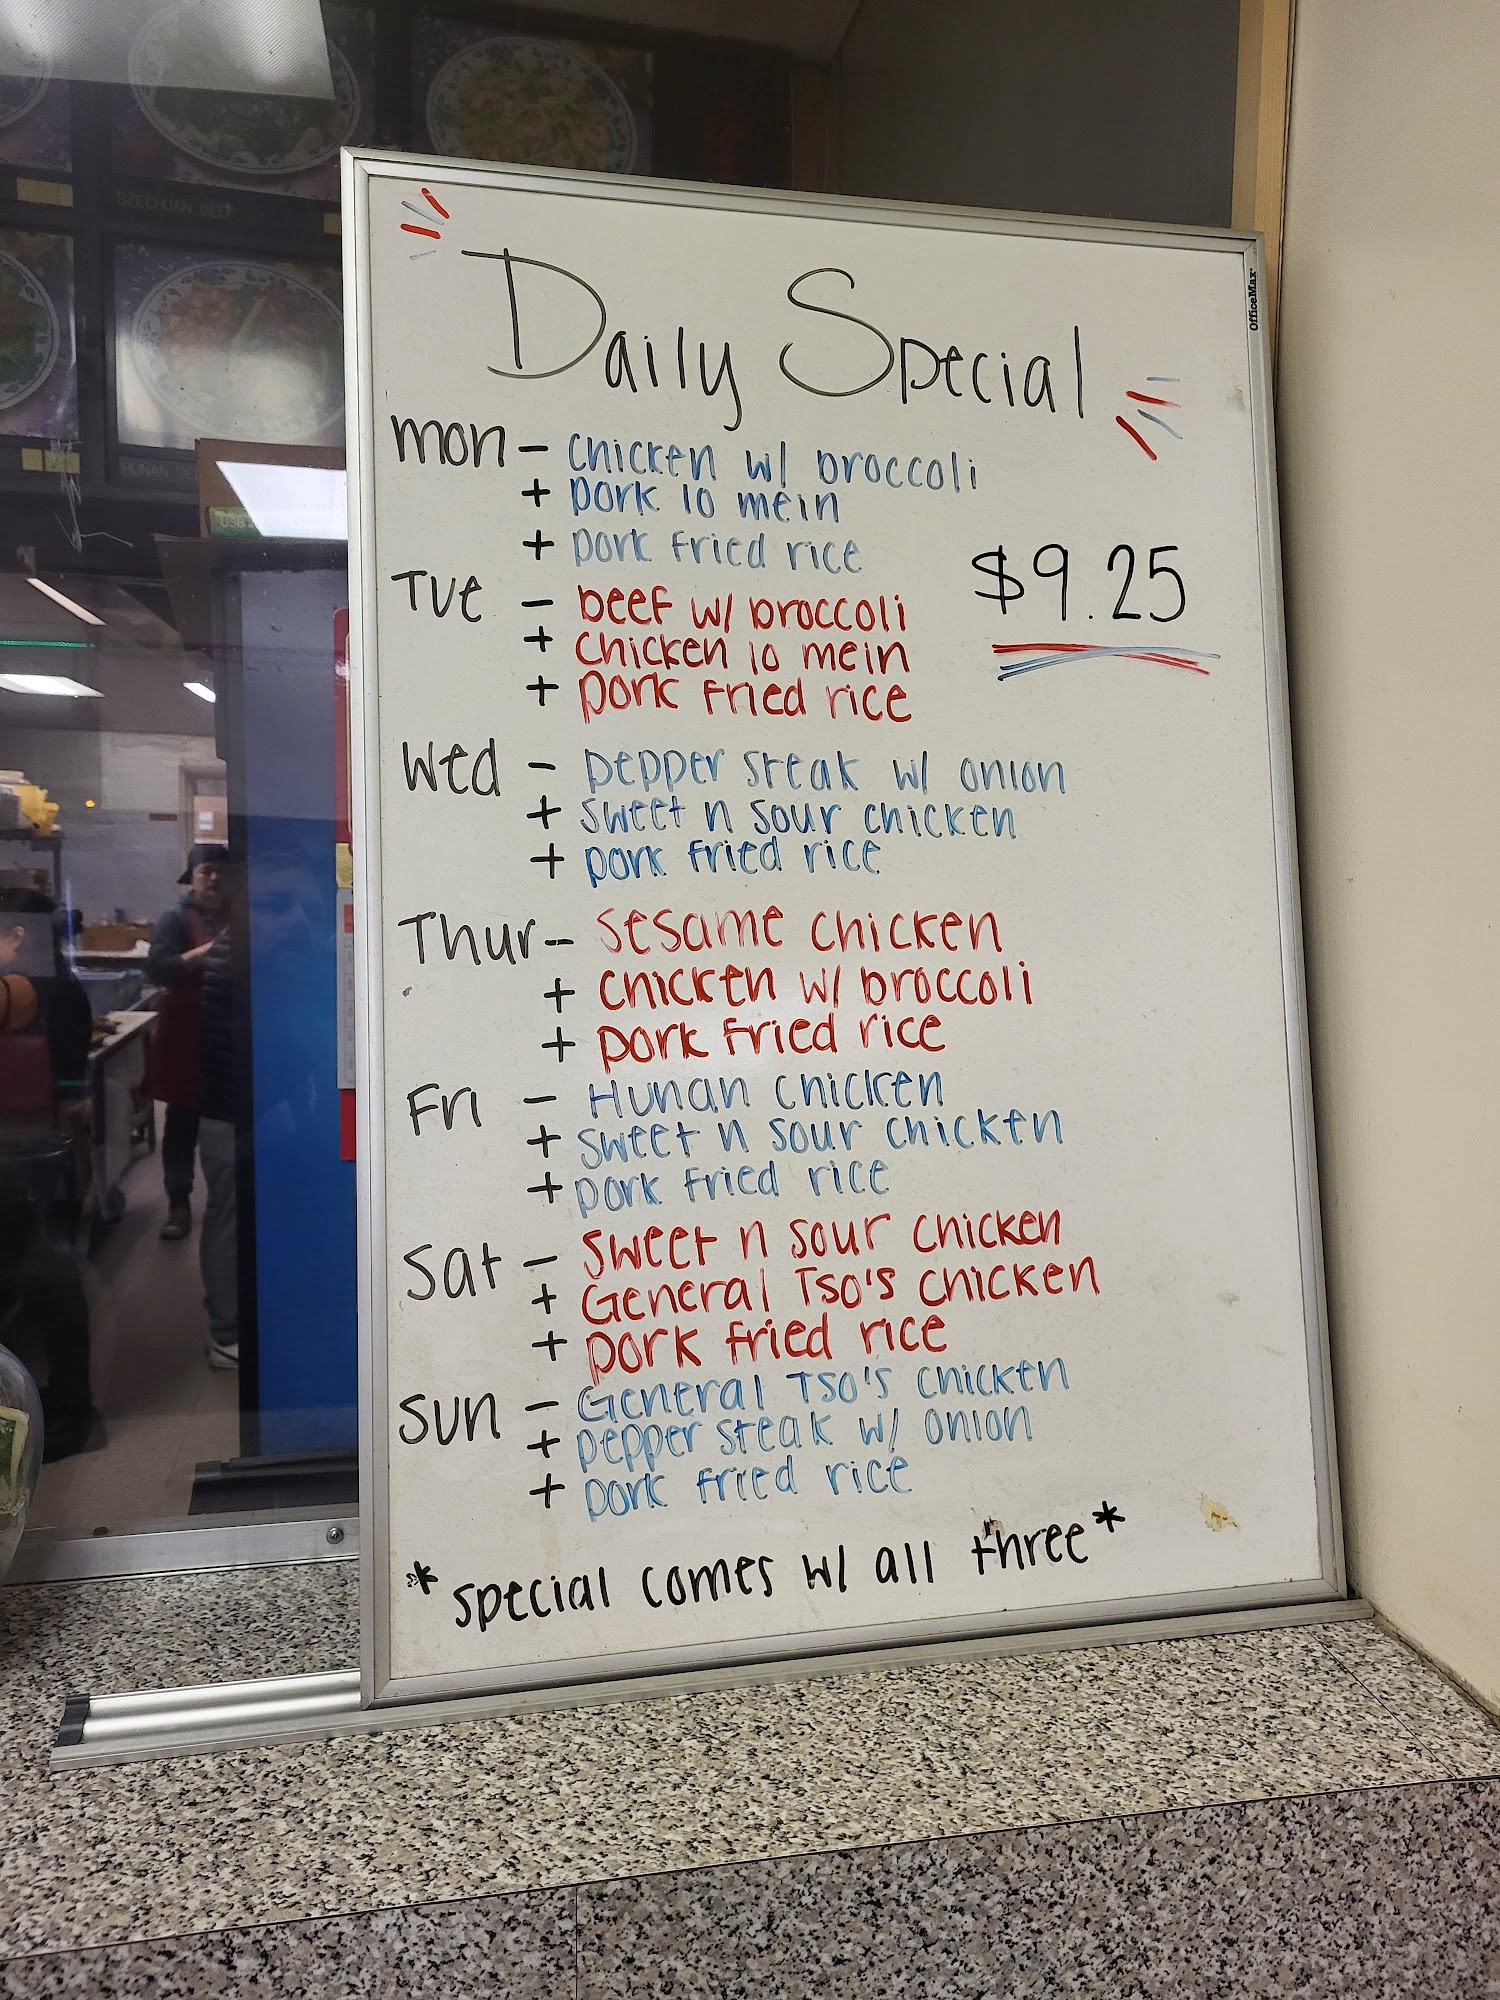 SZECHUAN BEEF
OfficeMax
Daily Special
Mon - chicken w/ broccoli
+ pork lo mein
+ pork fried rice
$9.25
Tue - beef w/ broccoli
+ chicken lo mein
+ pork fried rice
Wed - pepper steak w/ onion
+ sweet n sour chicken
+ pork fried rice
Thur - sesame chicken
+ chicken w/ broccoli
+ pork fried rice
Fri - Hunan chicken
+ sweet n sour chicken
+ pork fried rice
Sat - sweet n sour chicken
+ General Tso's chicken
+ pork fried rice
Sun - General Tso's chicken
+ pepper steak w/ onion
+ pork fried rice
*special comes w/ all three*
HUNAN